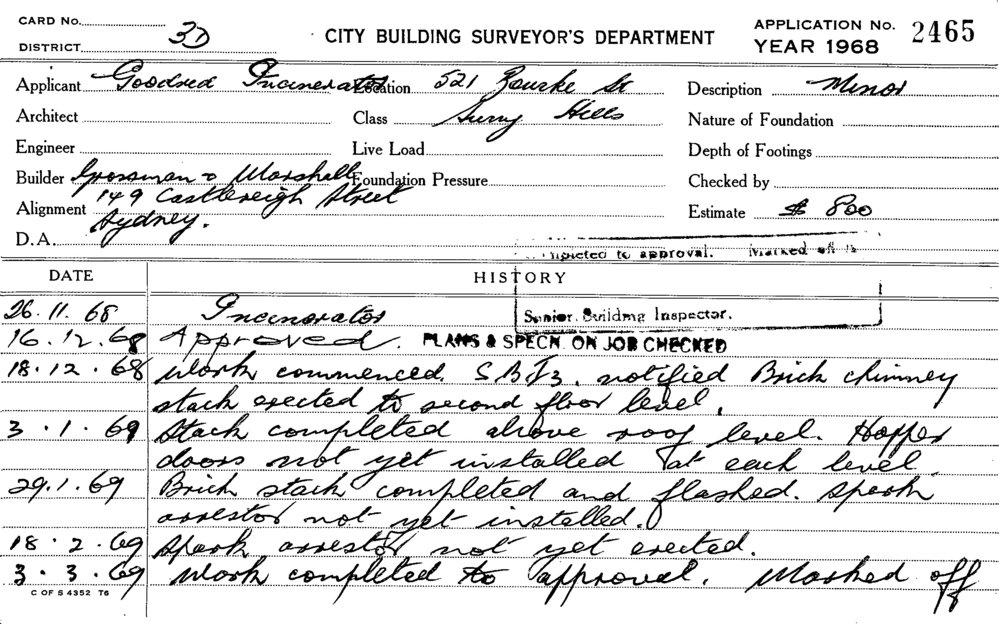 CARD No.
DISTRICT 3D
CITY BUILDING SURVEYOR'S DEPARTMENT
APPLICATION No. 2465
YEAR 1968
Applicant Goodsed Incinerator Location 521 Bourke St Description Minor
Architect Class Surry Hills Nature of Foundation
Engineer Live Load Depth of Footings
Builder Grossman & Marshall Foundation Pressure Checked by
Alignment 149 Castlereigh Street Estimate $ 800
Sydney.
D.A.
to approval. Marked off
DATE HISTORY
26.11.68 Incinorator Senior Building Inspector.
16.12.68 Approved. PLANS & SPECN. ON JOB CHECKED
18.12.68 Work commenced. S.B.I3. notified Brick chimney
stack erected to second floor level.
3.1.69 Stack completed above roof level. Hopper
doors not yet installed at each level.
29.1.69 Brick stack completed and flashed. Spark
arrestor not yet installed.
18.2.69 Spark arrestor not yet erected.
3.3.69 Work completed to approval. Marked off
C OF S 4352 T6